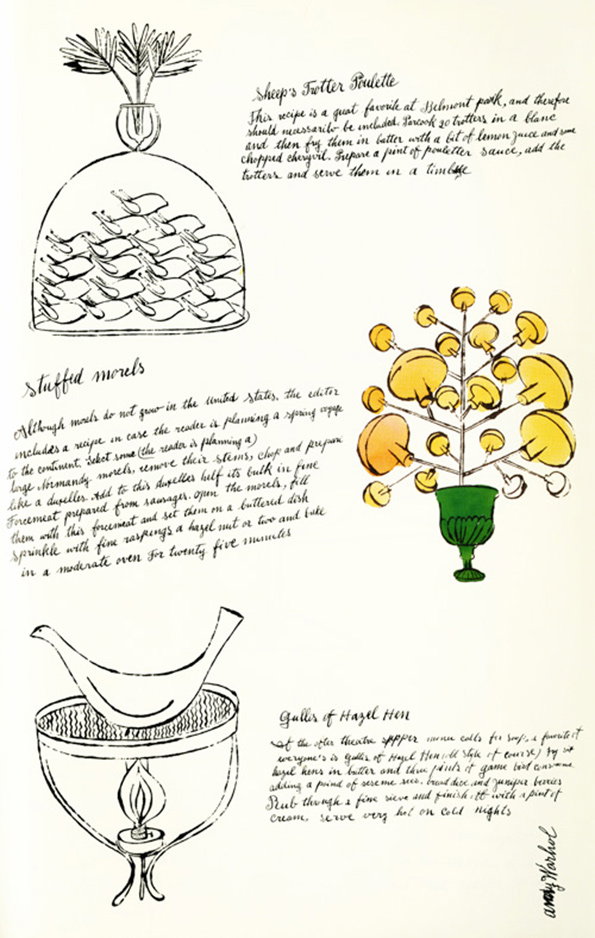 Sheep's Trotter Poulette
This recipe is a great favorite at Belmont park, and therefore
should nessarilo be included. Parcook 20 trotters in a blanc
and then fry them in batter with a bit of lemon juice and some
chopped chervil. Prepare a pint of pouletter sauce, add the
trotters and serve them in a timble
Stuffed morels
Although morels do not grow in the United States, the editor
includes a recipe in case the reader is planning a spring voyage
to the continent. Select some (the reader is planning a)
large Normandy morels, remove their stems, chop and prepare
like a duxeller. Add to this duxelles half its bulk in fine
Forcemeat prepared from sausages. open the morels, fill
them with this forcemeat and set them on a buttered dish
Sprinkle with fine raspings a hazel nut or two and bake
in a moderate oven For twenty five minutes
Gullis of Hazel Hen
At the after theatre supper menu calls for soup, a favorite of
everyone's is Gullis of Hazel Hen (old style of course) Fry six
hazel hens in butter and three pints of game bird consomme
adding a point of sereme sied. bread dice and juniper berries
Rub through a fine sieve and finish off with a pint of
cream, serve very hot on cold nights
andy Warhol